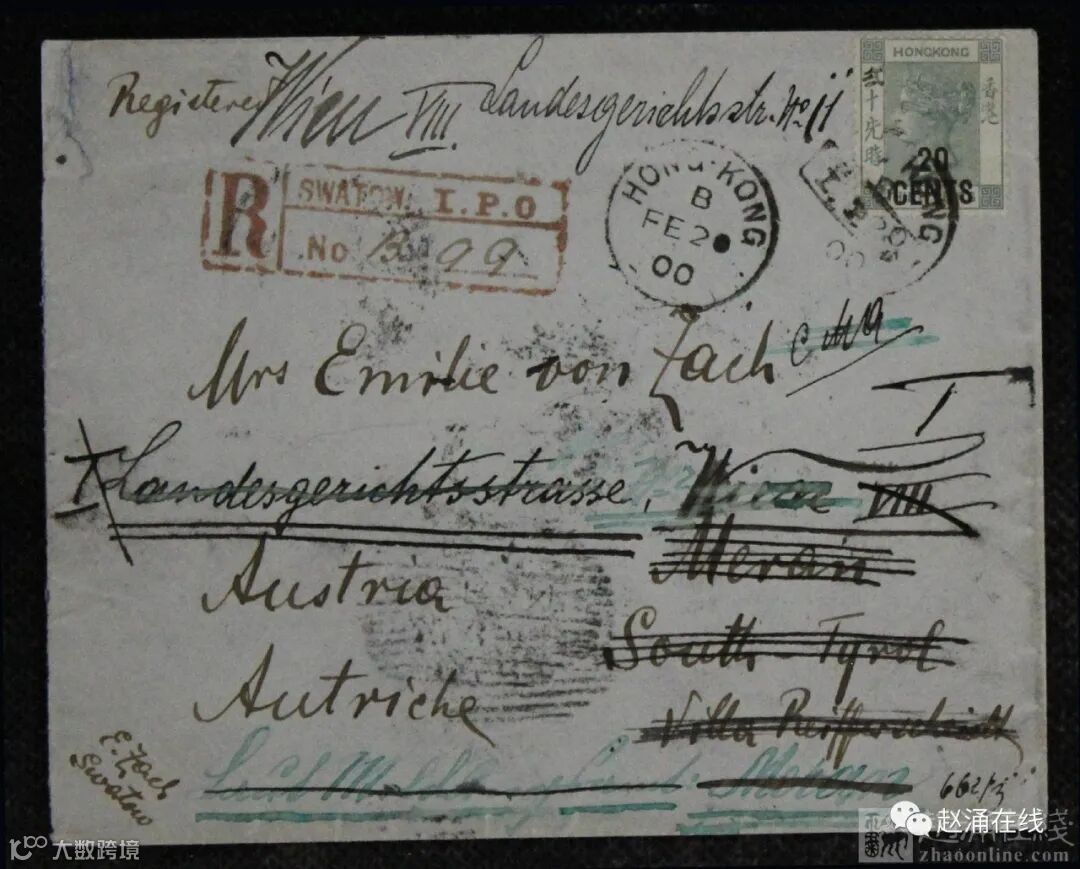 Registered Wien VIII. Landesgerichtsstr. No 11
HONGKONG
香港
20
CENTS
R
SWATOW. I.P.O
No 13 99
HONG-KONG
B
FE 2
00
Mrs Emilie von Zach
Landesgerichtsstrasse, Wien VIII
Meran
Austria
South-Tyrol
Autriche
Villa
Meran
E. Zach
Swatow
662/3
赵涌在线
大数跨境
zhaoonline.com